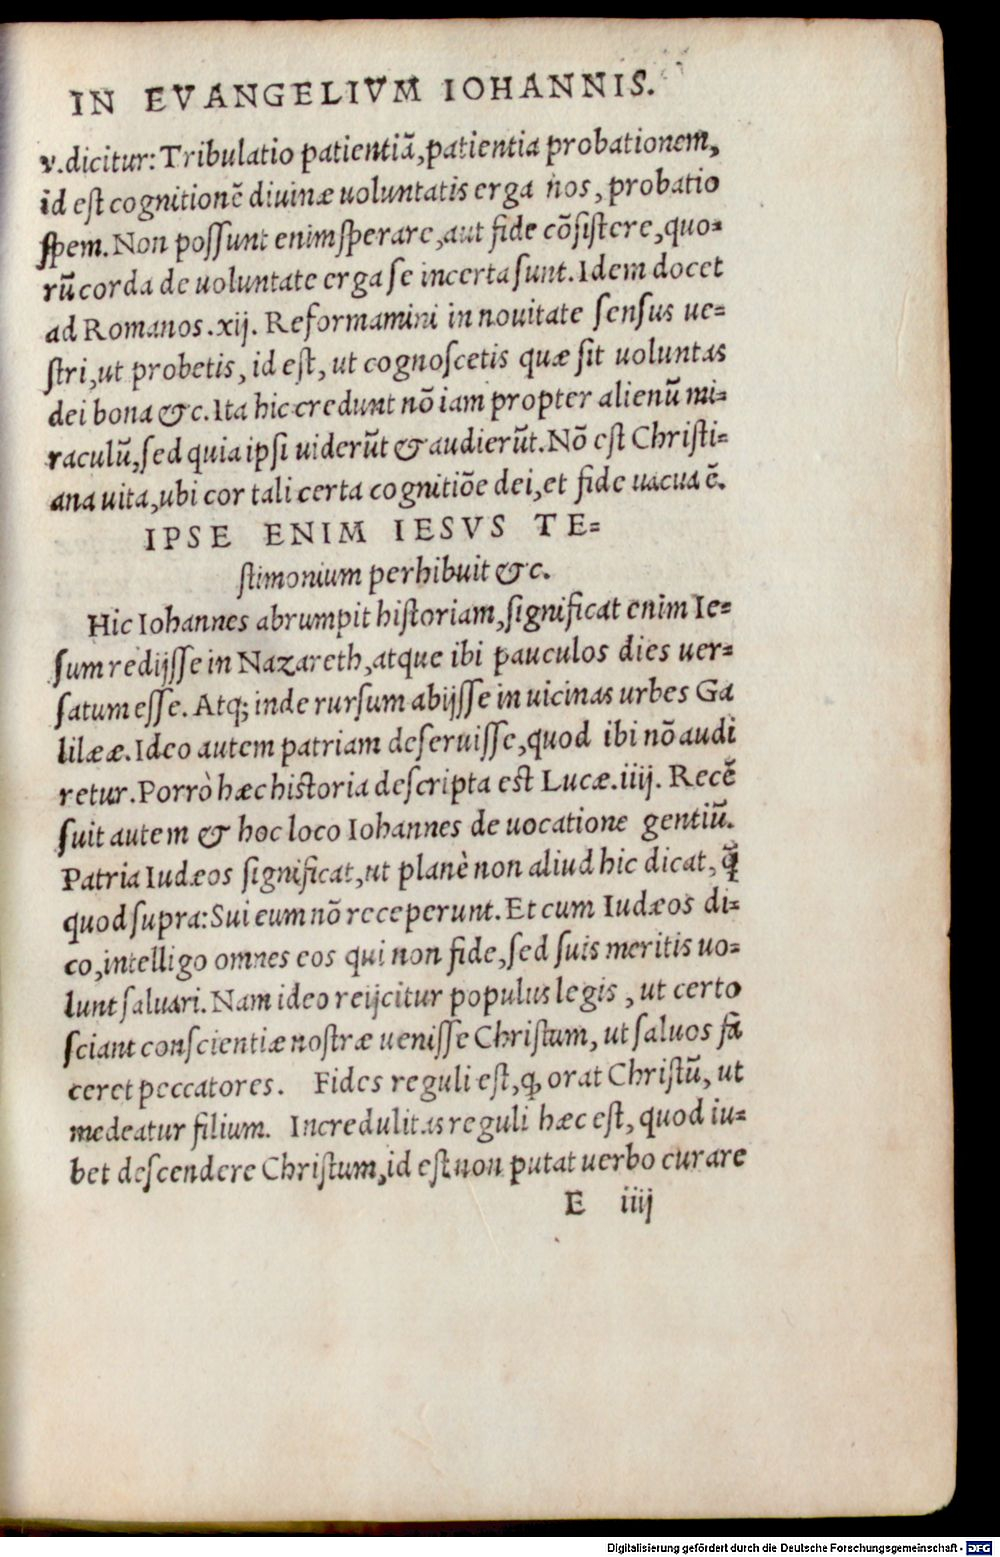 IN EVANGELIVM IOHANNIS.
v.dicitur: Tribulatio patientiã, patientia probationem,
id est cognitionẽ diuinæ uoluntatis erga nos, probatio
spem. Non possunt enim sperare, aut fide cõsistere, quo=
rũ corda de uoluntate erga se incerta sunt. Idem docet
ad Romanos .xij. Reformamini in nouitate sensus ue=
stri, ut probetis, id est, ut cognoscetis quæ sit uoluntas
dei bona &c. Ita hic credunt nõ iam propter alienũ mi=
raculũ, sed quia ipsi uiderũt & audierũt. Nõ est Christi=
ana uita, ubi cor tali certa cognitiõe dei, et fide uacua ẽ.
IPSE ENIM IESVS TE=
stimonium perhibuit &c.
Hic Iohannes abrumpit historiam, significat enim Ie=
sum redijsse in Nazareth, atque ibi pauculos dies uer=
satum esse. Atq; inde rursum abijsse in uicinas urbes Ga
lilææ. Ideo autem patriam deseruisse, quod ibi nõ audi
retur. Porrò hæc historia descripta est Lucæ.iiij. Recẽ
suit autem & hoc loco Iohannes de uocatione gentiũ.
Patria Iudæos significat, ut planè non aliud hic dicat, q̃
quod supra: Sui eum nõ receperunt. Et cum Iudæos di=
co, intelligo omnes eos qui non fide, sed suis meritis uo=
lunt saluari. Nam ideo reijcitur populus legis, ut certo
sciant conscientiæ nostræ uenisse Christum, ut saluos fa
ceret peccatores. Fides reguli est, ꝙ orat Christũ, ut
medeatur filium. Incredulitas reguli hæc est, quod iu=
bet descendere Christum, id est non putat uerbo curare
E iiij
Digitalisierung gefördert durch die Deutsche Forschungsgemeinschaft - DFG